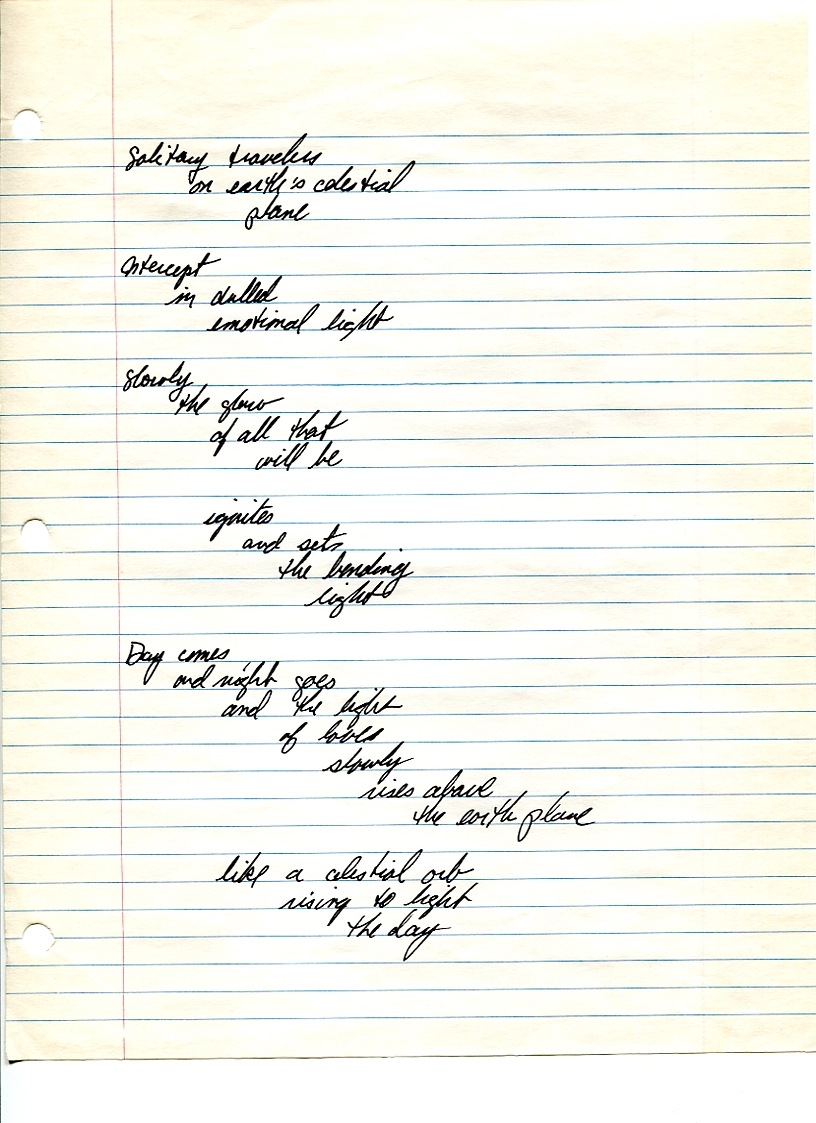 Solitary travelers
on earth's celestial
plane
Intercept
in dulled
emotional light
Slowly
the glow
of all that
will be
ignites
and sets
the bending
light
Day comes
and night goes
and the light
of loves
slowly
rises above
the earth plane
like a celestial orb
rising to light
the day